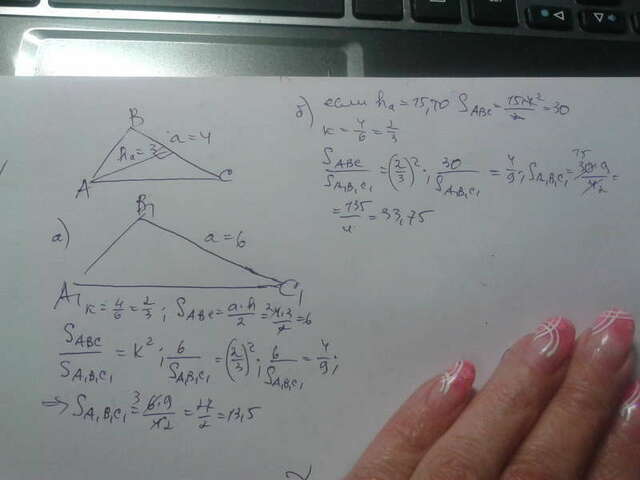 B
hₐ = 3
a = 4
A
C
а)
B₁
a = 6
A₁
C₁
k = 4/6 = 2/3 ; S ABC = a·h/2 = 4·3/2 = 6
S ABC / S A₁B₁C₁ = k² ; 6 / S A₁B₁C₁ = (2/3)² ; 6 / S A₁B₁C₁ = 4/9 ;
⇒ S A₁B₁C₁ = 6·9/4 = 27/2 = 13,5
б) если hₐ = 15, то S ABC = 15·4/2 = 30
k = 4/6 = 2/3
S ABC / S A₁B₁C₁ = (2/3)² ; 30 / S A₁B₁C₁ = 4/9 ; S A₁B₁C₁ = 30·9/4 =
= 135/4 = 33,75